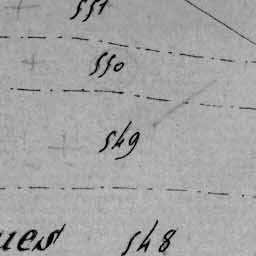 551
550
549
ues 548